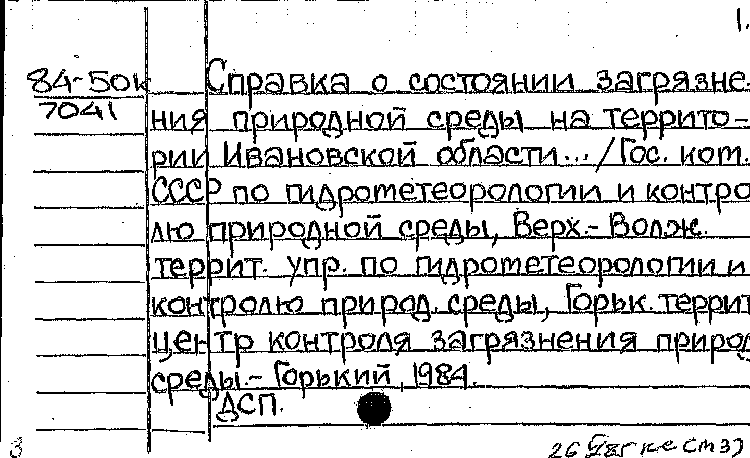 1.
84-50к Справка о состоянии загрязне-
7041 ния природной среды на террито-
рии Ивановской области... / Гос. ком.
СССР по гидрометеорологии и контро
лю природной среды, Верх.- Волж.
террит. упр. по гидрометеорологии и
контролю природ. среды, Горьк. террит
центр контроля загрязнения природ
среды.- Горький, 1984.
ДСП.
3